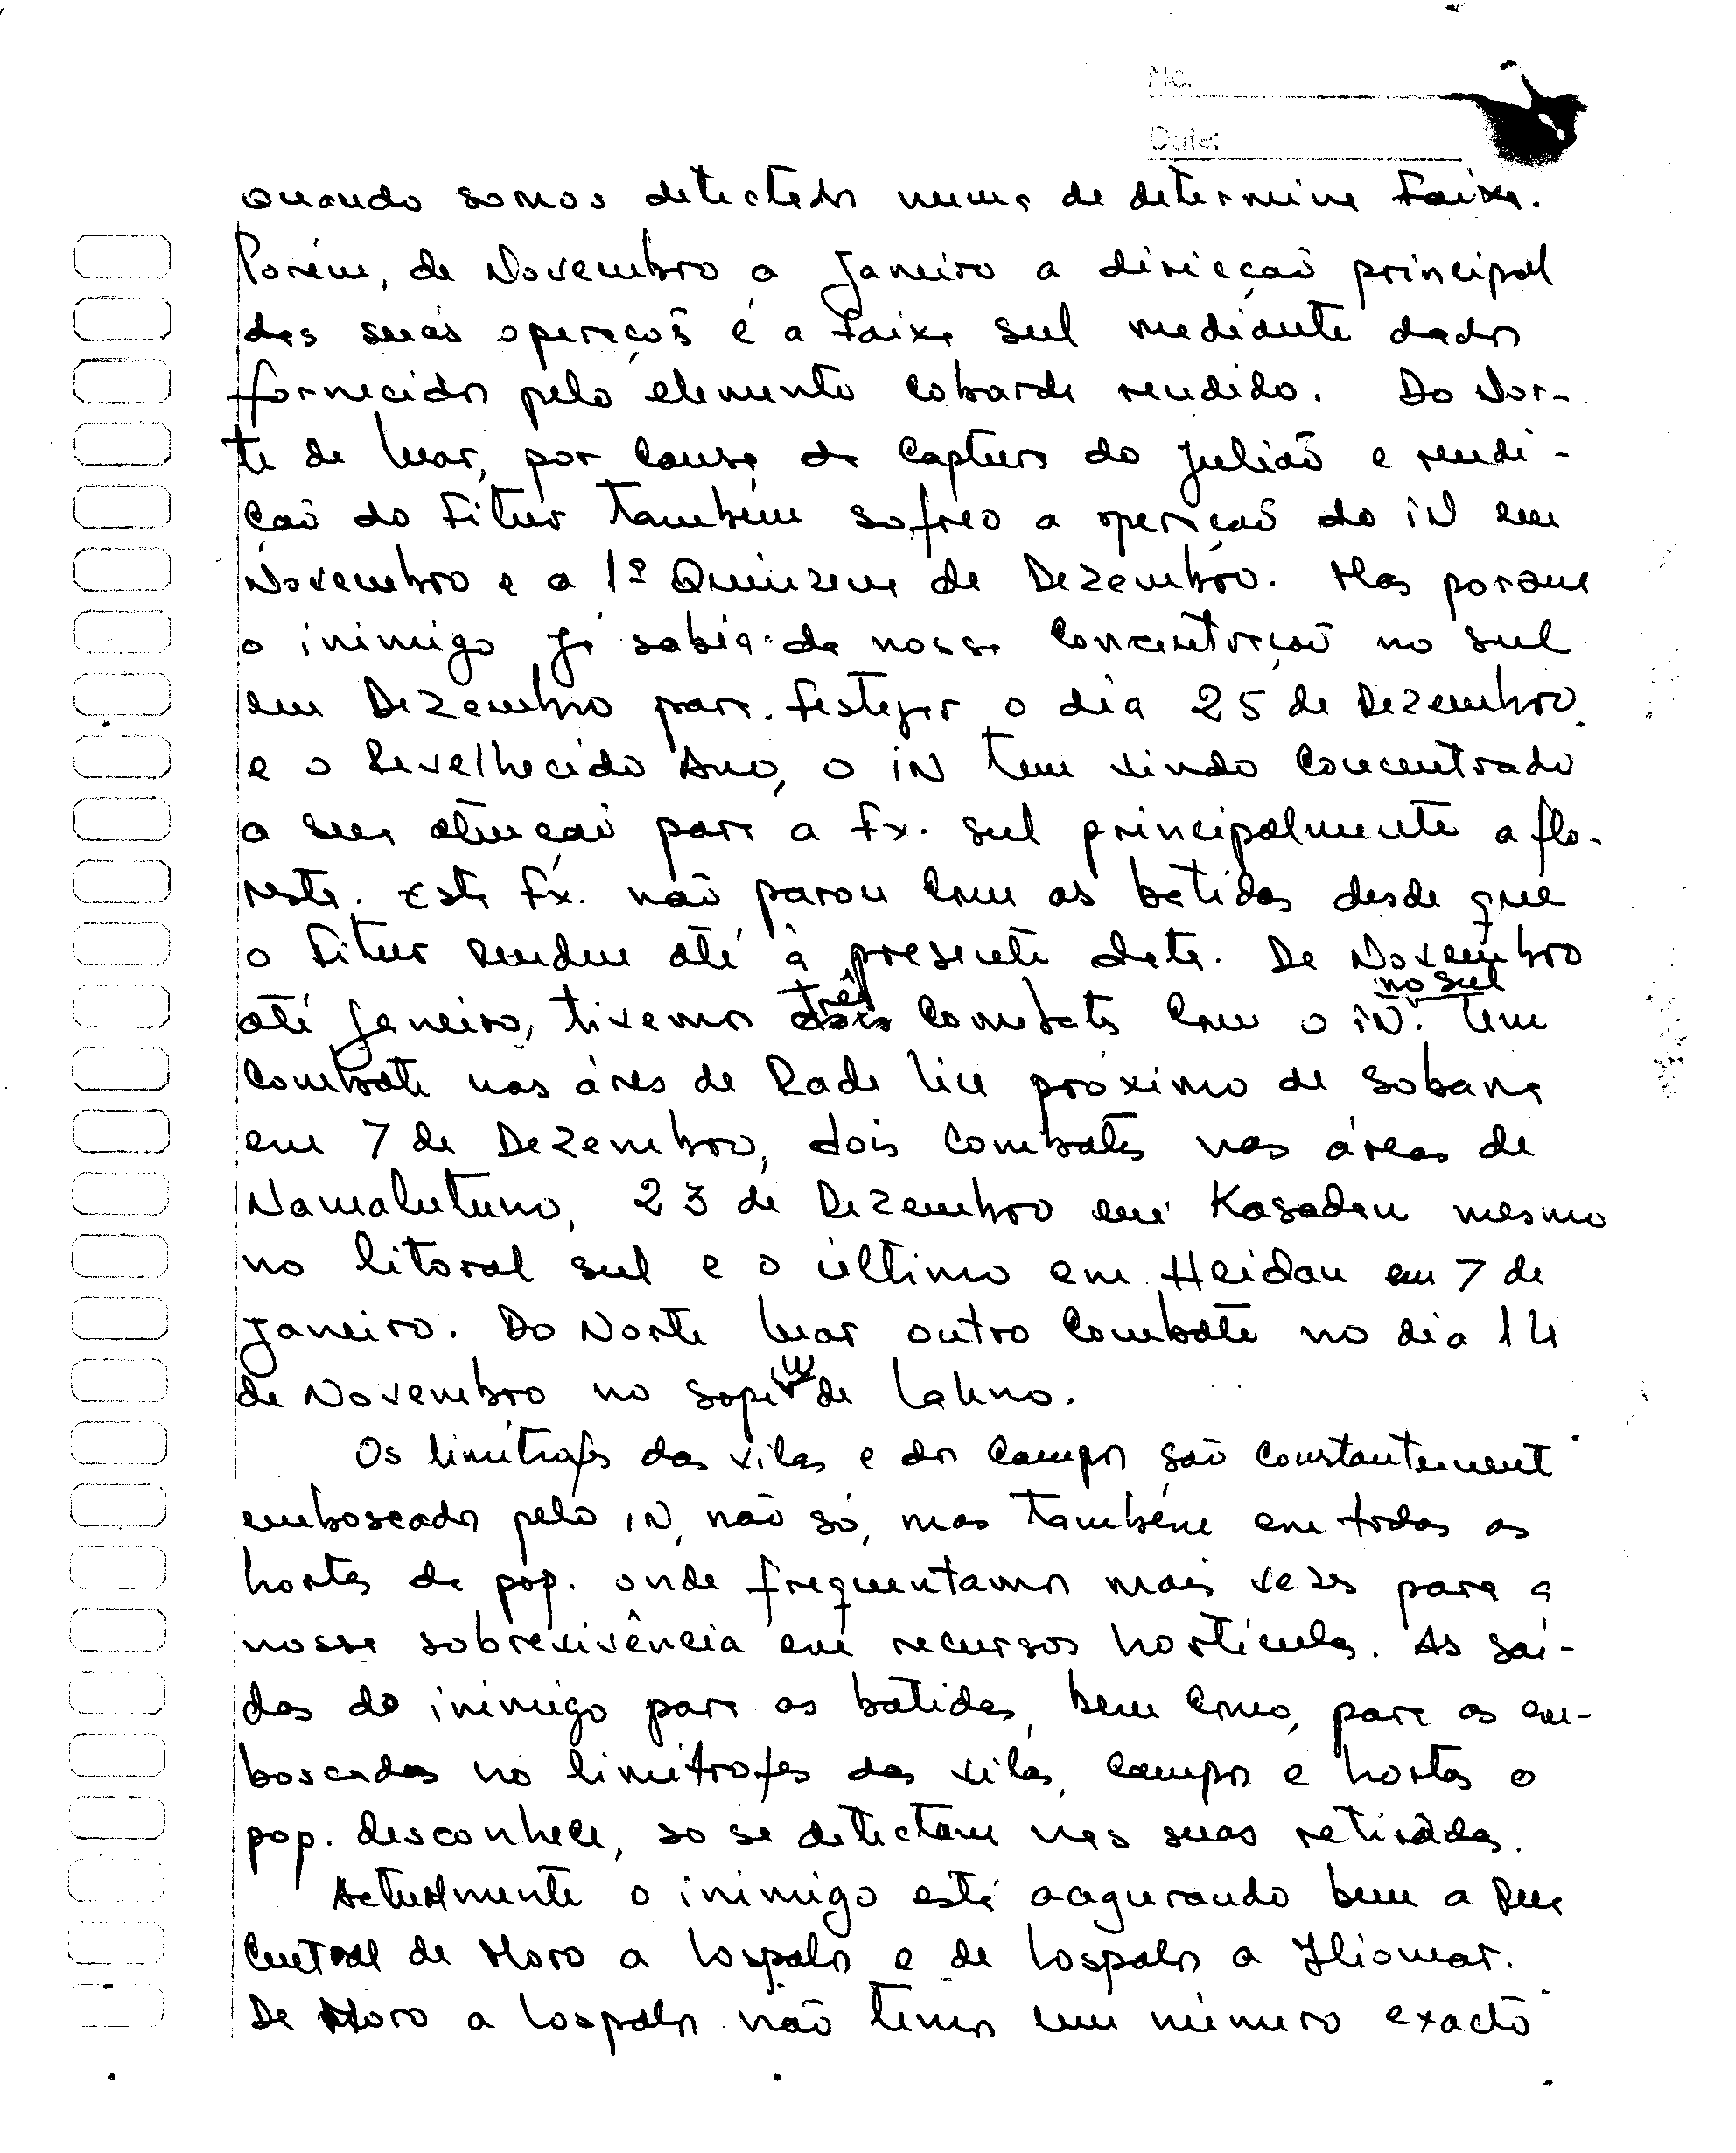 No.
Date:
quando somos detectados numa de determina Faixa.
Porém, de Novembro a Janeiro a direcção principal
das suas operações é a Faixa sul mediante dados
fornecidos pelo elemento cobarde rendido. Do Nor-
te de Luar, por causa da captura do Julião e rendi-
ção do Fitur também sofreo a operação do iN em
Novembro e a 1ª Quinzena de Dezembro. Mas porque
o inimigo já sabia da nossa concentração no sul
em Dezembro para festejar o dia 25 de Dezembro
e o Revelhecido Ano, o iN tem vindo concentrado
a sua atenção para a fx. sul principalmente a flo-
resta. Esta fx. não parou com as batidas desde que
o Fitur rendeu até à presente data. De Novembro
até Janeiro, tivemos três combates com o iN no sul. Um
combate nas áreas de Rade Liu próximo de Sobana
em 7 de Dezembro, dois combates nas áreas de
Namalutuno, 23 de Dezembro em Kasadau mesmo
no litoral sul e o último em Heidau em 7 de
Janeiro. Do Norte Luar outro combate no dia 14
de Novembro no sopé de Lahno.
Os limítrofes das vilas e dos campos são constantement
emboscados pelo iN, não só, mas também em todas as
hortas da pop. onde frequentamos mais vezes para a
nossa sobrevivência em recursos hortículas. As saí-
das do inimigo para as batidas, bem como, para as em-
boscadas no limítrofes das vilas, campos e hortas o
pop. desconhece, so se detectam nas suas retiradas.
Actualmente o inimigo está asegurando bem a Rua
Central de Moro a Lospalos e de Lospalos a Iliomar.
De Moro a Lospalos não temos um número exacto